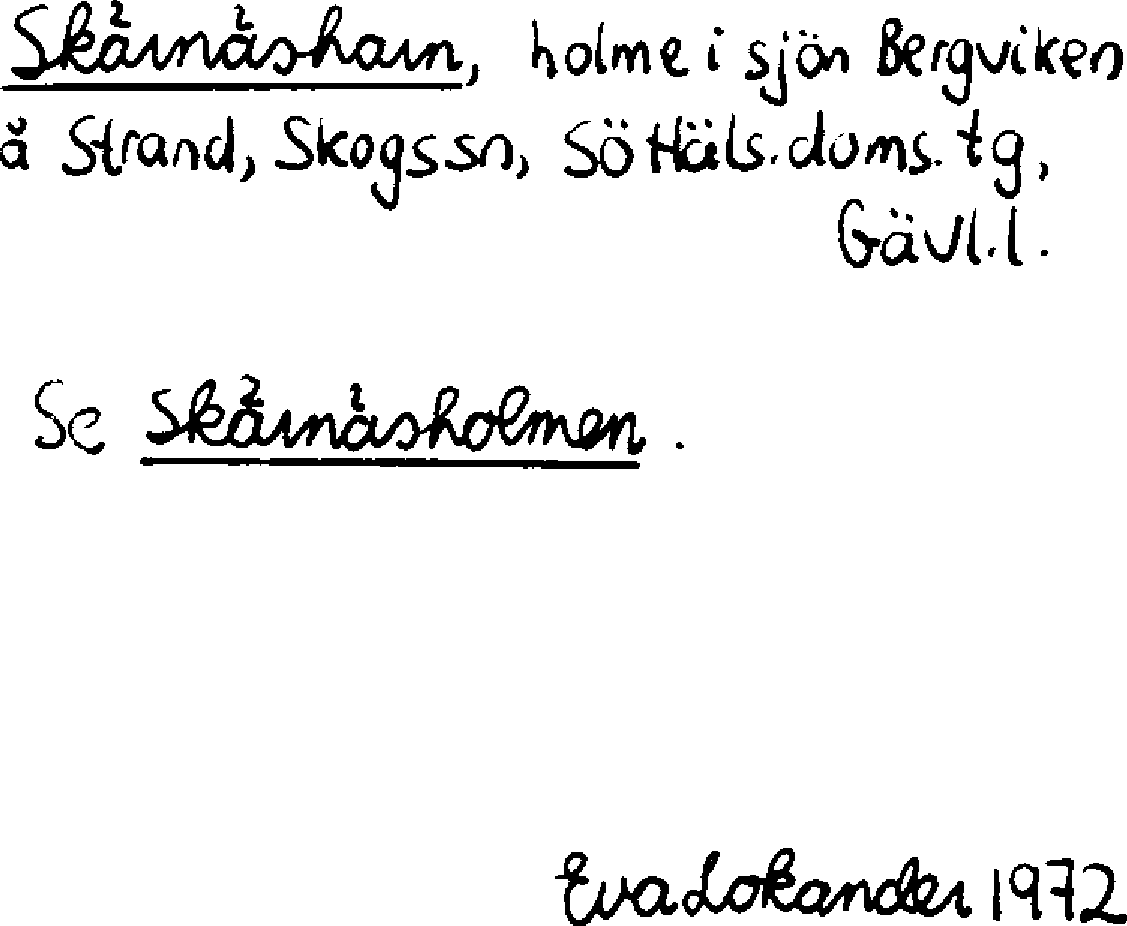 Skärnäsharn, holme i sjön Bergviken
å Strand, Skogs sn, Sö Häls. doms. tg,
Gävl. l.
Se Skärnäsholmen.
Eva Lokander 1972